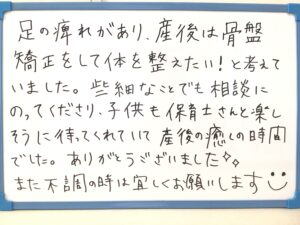 足の痺れがあり、産後は骨盤
矯正をして体を整えたい！と考えて
いました。些細なことでも相談に
のってくださり、子供も保育士さんと楽し
そうに待ってくれていて産後の癒しの時間
でした。ありがとうございました✧✧
また不調の時は宜しくお願いします☺